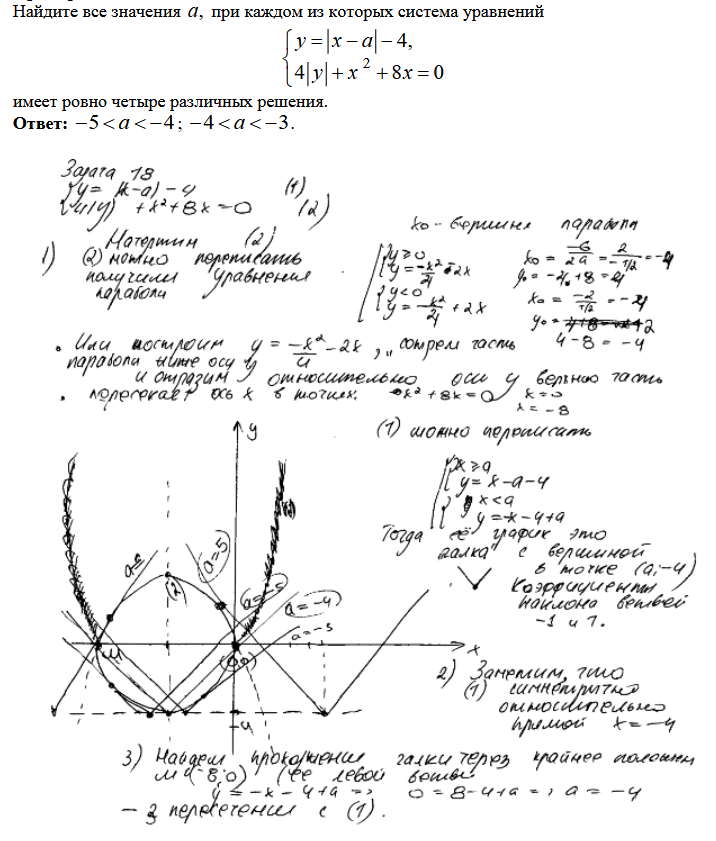 Найдите все значения a, при каждом из которых система уравнений
{ y = |x − a| − 4,
4|y| + x² + 8x = 0
имеет ровно четыре различных решения.
Ответ: −5 < a < −4; −4 < a < −3.
Задача 18
{ y = |x−a| − 4 (1)
4|y| + x² + 8x = 0 (2)
x₀ – вершина параболы
1) (2)
(2) можно переписать
получили уравнения
параболы
{ y ≥ 0
y = −x²/4 − 2x
{ y < 0
y = x²/4 + 2x
y₀ = −4 + 8 = 4
4 − 8 = −4
• Или построим y = −x²/4 − 2x, сотрем часть
параболы ниже осу y
и отразим относительно оси y верхнюю часть
• пересекает ось x в точках. x² + 8x = 0 x = 0
x = −8
(1) можно переписать
{ x ≥ a
y = x − a − 4
{ x < a
y = −x − 4 + a
Тогда её график это
"галка" с вершиной
в точке (a; −4)
Коэффициенты
наклона ветвей
−1 и 1.
y
a=5
(2)
a=−4
a=−3
M
x
−4
2) Заметим, что
(1) симметрично
относительно
прямой x = −4
3) Найдем галки через крайнее
M (−8; 0) (ее левой ветви
y = −x − 4 + a => 0 = 8 − 4 + a =>, a = −4
– 3 пересечения с (1).